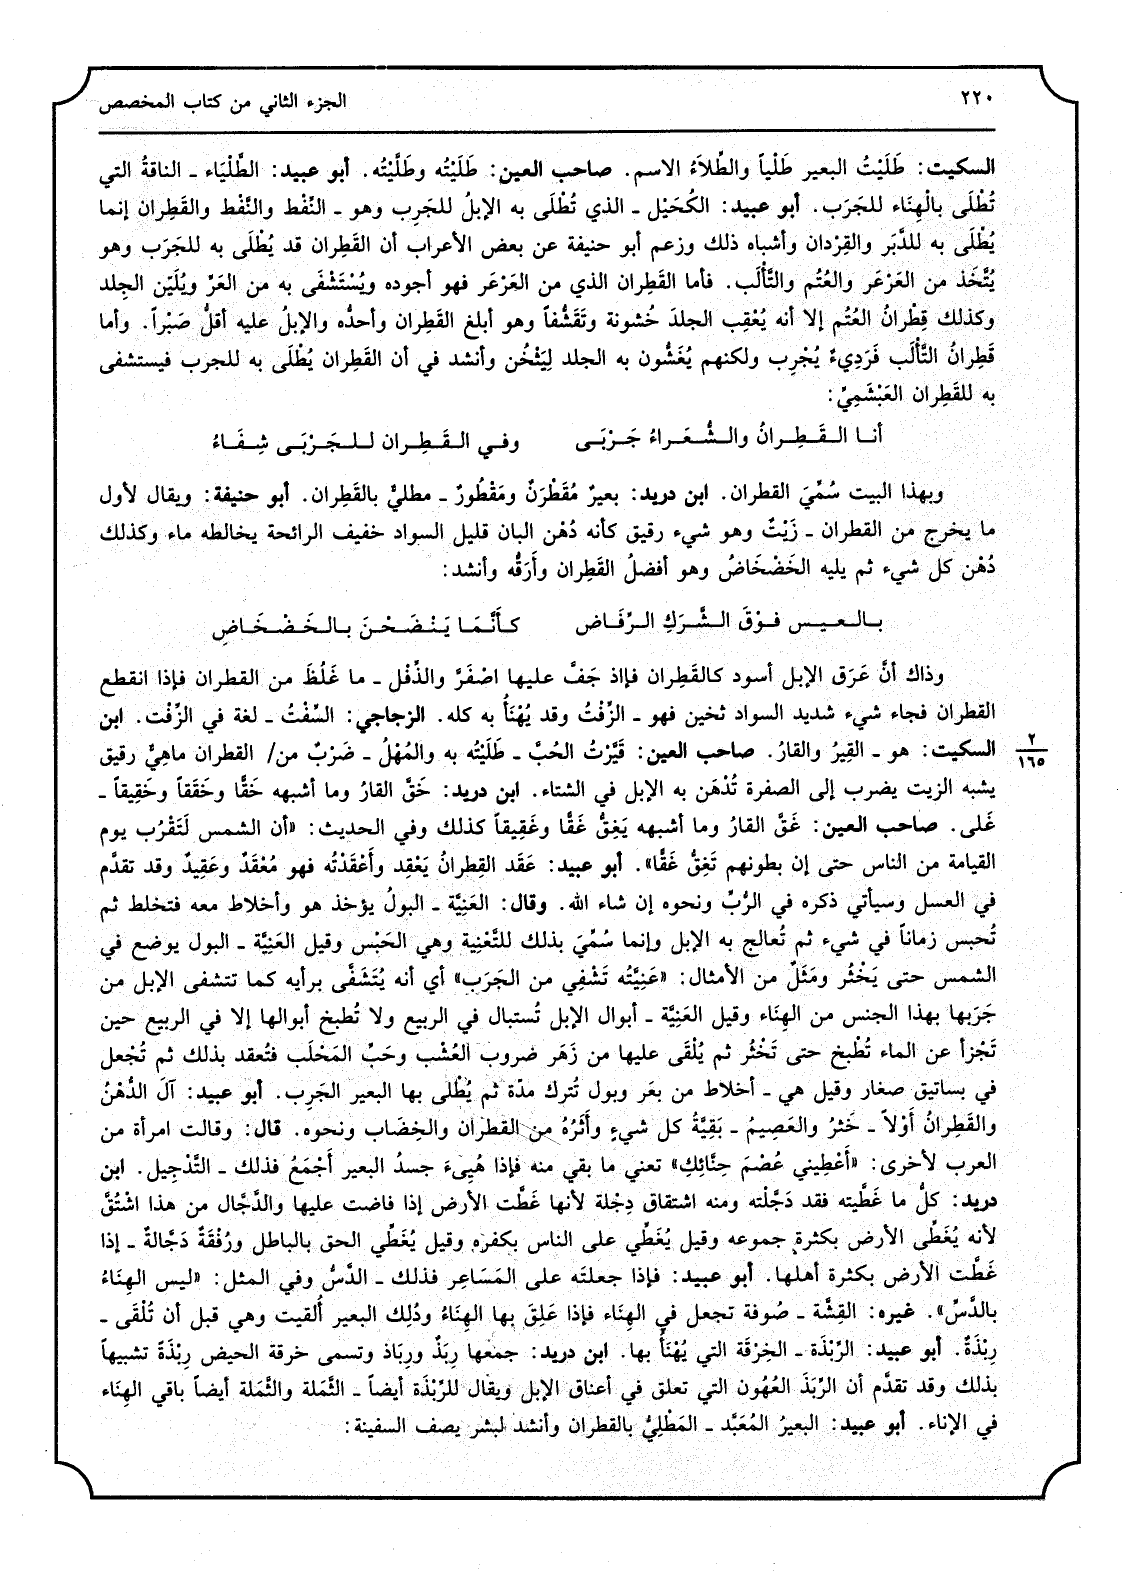 ٢٢٠
الجزء الثاني من كتاب المخصص
السكيت: طَلَيْتُ البعير طَلْياً والطِّلاَءُ الاسم. صاحب العين: طَلَيْتُه وطَلَّيْتُه. أبو عبيد: الطَّلْيَاء ـ الناقةُ التي
تُطْلَى بالْهِنَاء للجَرَب. أبو عبيد: الكُحَيْل ـ الذي تُطْلَى به الإبلُ للجَرِب وهو ـ النِّفْط والنَّفْط والقَطِران إنما
يُطْلَى به للدَّبَر والقِرْدان وأشباه ذلك وزعم أبو حنيفة عن بعض الأعراب أن القَطِران قد يُطْلَى به للجَرَب وهو
يُتَّخَذ من العَرْعَر والعُتُم والتَّأْلَب. فأما القَطِران الذي من العَرْعَر فهو أجوده ويُسْتَشْفَى به من العَرِّ ويُلَيّن الجِلد
وكذلك قِطْرانُ العُتُم إلا أنه يُعْقِب الجلدَ خُشونة وتَقَشُّفاً وهو أبلغ القَطِران وأحدُّه والإبلُ عليه أقلُّ صَبْراً. وأما
قَطِرانُ التَّأْلَب فَرَدِيءٌ يُجْرِب ولكنهم يُغَشُّون به الجلد لِيَثْخُن وأنشد في أن القَطِران يُطْلَى به للجرب فيستشفى
به للقَطِران العَبْشَمِيِّ:
أنـا الـقَـطِـرانُ والـشُّـعَـراءُ جَـرْبَـى وفـي الـقَـطِـران لـلـجَـرْبَـى شِـفَـاءُ
وبهذا البيت سُمِّيَ القطران. ابن دريد: بعيرٌ مُقَطْرَنٌ ومَقْطُورٌ ـ مطليٌّ بالقَطِران. أبو حنيفة: ويقال لأول
ما يخرج من القطران ـ زَيْتٌ وهو شيء رقيق كأنه دُهْن البان قليل السواد خفيف الرائحة يخالطه ماء وكذلك
دُهْن كل شيء ثم يليه الخَضْخَاضُ وهو أفضلُ القَطِران وأَرَقُّه وأنشد:
بـالـعـيـس فـوْقَ الـشَّـرَكِ الـرِّفَـاض كـأَنَّـمَـا يَـنْـضَـحْـنَ بـالـخَـضْـخَـاضِ
وذاك أنَّ عَرَق الإبل أسود كالقَطِران فإاذ جَفَّ عليها اصْفَرَّ والذِّفْل ـ ما غَلُظَ من القطران فإذا انقطع
القطران فجاء شيء شديد السواد ثخين فهو ـ الزِّفْتُ وقد يُهْنَأُ به كله. الزجاجي: السِّفْتُ ـ لغة في الزِّفْت. ابن
السكيت: هو ـ القِيرُ والقارُ. صاحب العين: قَيَّرْتُ الحُبَّ ـ طَلَيْتُه به والمُهْلُ ـ ضَرْبٌ من/ القطران ماهِيٌّ رقيق
٢
١٦٥
يشبه الزيت يضرب إلى الصفرة تُدْهَن به الإبل في الشتاء. ابن دريد: خَقَّ القارُ وما أشبهه خَقًّا وخَقَقاً وخَقِيقاً ـ
غَلى. صاحب العين: غَقَّ القارُ وما أشبهه يَغِقُّ غَقًّا وغَقِيقاً كذلك وفي الحديث: «أن الشمس لَتَقْرُب يوم
القيامة من الناس حتى إن بطونهم تَغِقُّ غَقًّا». أبو عبيد: عَقَد القِطرانُ يَعْقِد وأَعْقَدْتُه فهو مُعْقَدٌ وعَقِيدٌ وقد تقدَّم
في العسل وسيأتي ذكره في الرُّبِّ ونحوه إن شاء الله. وقال: العَنِيَّة ـ البولُ يؤخذ هو وأخلاط معه فتخلط ثم
تُحبس زماناً في شيء ثم تُعالج به الإبل وإنما سُمِّيَ بذلك للتَّعْنِية وهي الحَبْس وقيل العَنِيَّة ـ البول يوضع في
الشمس حتى يَخْثُر ومَثَلٌ من الأمثال: «عَنِيَّتُه تَشْفِي من الجَرَب» أي أنه يُتَشَفَّى برأيه كما تتشفى الإبل من
جَرَبها بهذا الجنس من الهِنَاء وقيل العَنِيَّة ـ أبوال الإبل تُستبال في الربيع ولا تُطبخ أبوالها إلا في الربيع حين
تَجْزأ عن الماء تُطْبخ حتى تَخْثُر ثم يُلْقَى عليها من زَهَر ضروب العُشْب وحَبِّ المَحْلَب فتُعقد بذلك ثم تُجْعل
في بساتيق صغار وقيل هي ـ أخلاط من بعَر وبول تُترك مدّة ثم يُطْلى بها البعير الجَرِب. أبو عبيد: آلَ الدُّهْنُ
والقَطِرانُ أَوْلاً ـ خَثرُ والعَصِيمُ ـ بَقِيَّةُ كل شيءٍ وأَثَرُهُ من القطران والخِضَاب ونحوه. قال: وقالت امرأة من
العرب لأخرى: «أَعْطِيني عُصْمَ حِنَّائِكِ» تعني ما بقي منه فإذا هُنِيءَ جسدُ البعير أَجْمَعُ فذلك ـ التَّدْجِيل. ابن
دريد: كلُّ ما غَطَّيته فقد دَجَّلْته ومنه اشتقاق دِجْلة لأنها غَطَّت الأرض إذا فاضت عليها والدَّجَّال من هذا اشْتُقَّ
لأنه يُغَطِّى الأرض بكثرة جموعه وقيل يُغَطِّي على الناس بكفره وقيل يُغَطِّي الحق بالباطل ورُفْقَةٌ دَجَّالةٌ ـ إذا
غَطَّت الأرض بكثرة أهلها. أبو عبيد: فإذا جعلتَه على المَسَاعِر فذلك ـ الدَّسُّ وفي المثل: «ليس الهِنَاءُ
بالدَّسِّ». غيره: القِشَّة ـ صُوفة تجعل في الهِنَاء فإذا عَلِقَ بها الهِنَاءُ ودُلِك البعير أُلقيت وهي قبل أن تُلْقَى ـ
رِبْذَةٌ. أبو عبيد: الرِّبْذَة ـ الخِرْقَة التي يُهْنَأُ بها. ابن دريد: جمعها رِبَذٌ ورِبَاذ وتسمى خرقة الحيض رِبْذَةً تشبيهاً
بذلك وقد تقدَّم أن الرِّبَذَ العُهُون التي تعلق في أعناق الإبل ويقال للرِّبْذَة أيضاً ـ الثَّمَلة والثَّمَلة أيضاً باقي الهِنَاء
في الإناء. أبو عبيد: البعيرُ المُعَبَّد ـ المَطْلِيُّ بالقطران وأنشد لبشر يصف السفينة: